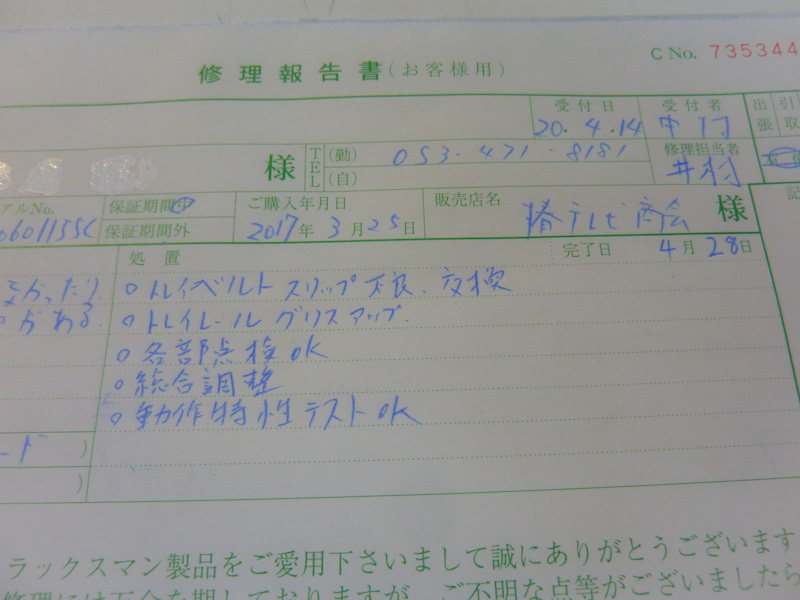 C No. 735344
修理報告書(お客様用)
受付日 受付者 出張 引取
20.4.14 中村
様 TEL (勤) 053-471-8181 修理担当者
(自) 井村
アルNo. 保証期間中 ご購入年月日 販売店名
保証期間外 2017年3月25日 椿テレビ商会 様
処置 完了日 4月28日
なかったり ○トレイベルトスリップ不良、交換
がある ○トレイレールグリスアップ.
○各部点検OK
○総合調整
○動作特性テストOK
ード )
)
ラックスマン製品をご愛用下さいまして誠にありがとうございます
修理には万全を期しておりますが、ご不明な点等がございましたら